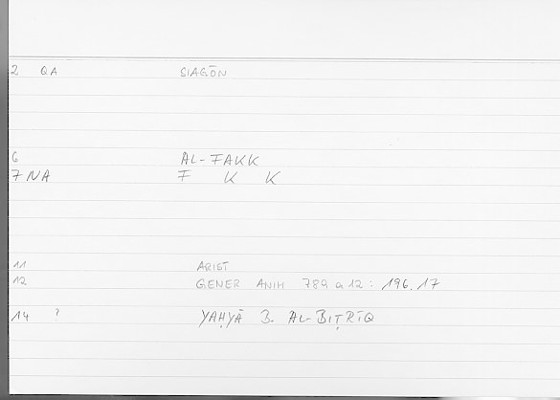 2 QA SIAGŌN
6 AL-FAKK
7 NA F K K
11 ARIST
12 GENER ANIM 789 a 12 : 196.17
14 ? YAḤYĀ B. AL-BIṬRĪQ